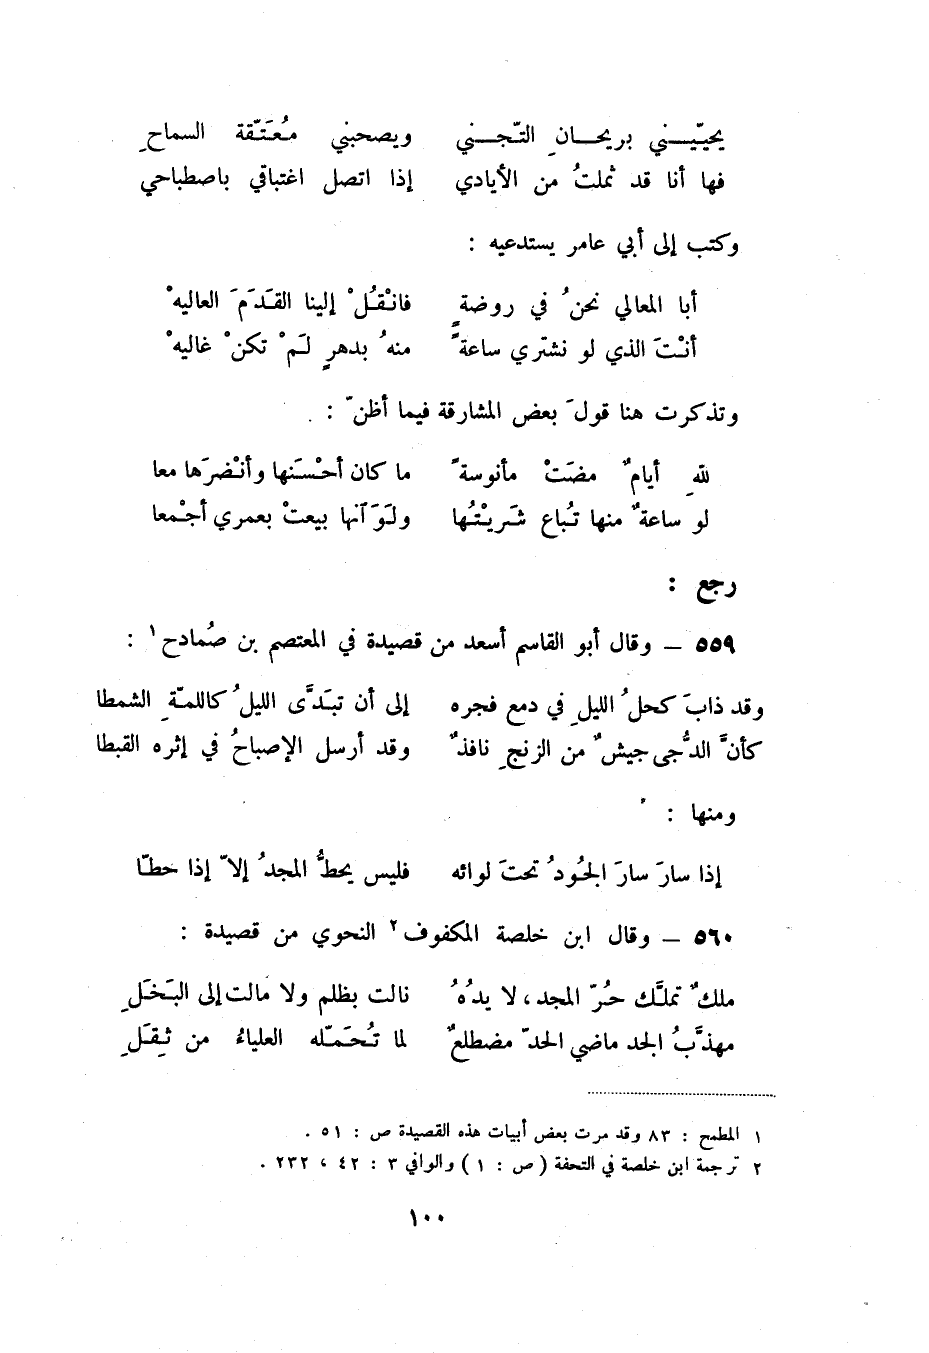 يحيّيـــني بريحــانِ التّجــني ويصحبني مُعَتّقة السماحِ
فها أنا قد ثملتُ من الأيادي إذا اتصل اغتباقي باصطباحي
وكتب إلى أبي عامر يستدعيه :
أبا المعالي نحنُ في روضةٍ فانْقُلْ إلينا القَدَمَ العاليهْ
أنْتَ الذي لو نشتري ساعةً منهُ بدهرٍ لَمْ تكنْ غاليهْ
وتذكرت هنا قولَ بعض المشارقة فيما أظنّ :
للهِ أيامٌ مضتْ مأنوسةً ما كان أحْسَنها وأنْضرَها معا
لو ساعةٌ منها تُباع شَريْتُها ولَوَ آنها بيعتْ بعمري أجْمعا
رجع :
٥٥٩ – وقال أبو القاسم أسعد من قصيدة في المعتصم بن صُمادح١ :
وقد ذابَ كحلُ الليلِ في دمع فجره إلى أن تبَدَّى الليلُ كاللمّةِ الشمطا
كأنَّ الدُّجى جيشٌ من الزنجِ نافذٌ وقد أرسل الإصباحُ في إثره القبطا
ومنها :
إذا سارَ سارَ الجُودُ تحتَ لوائه فليس يحطُّ المجدُ إلاّ إذا حطّا
٥٦٠ – وقال ابن خلصة المكفوف٢ النحوي من قصيدة :
ملكٌ تملَّك حُرّ المجد، لا يدُهُ نالت بظلم ولا مالت إلى البَخَلِ
مهذَّبُ الجد ماضي الحدّ مضطلعٌ لما تُحَمّله العلياءُ من ثِقَلِ
١ المطمح : ٨٣ وقد مرت بعض أبيات هذه القصيدة ص : ٥١ .
٢ ترجمة ابن خلصة في التحفة ( ص : ١ ) والوافي ٣ : ٤٢ ، ٢٣٢ .
١٠٠